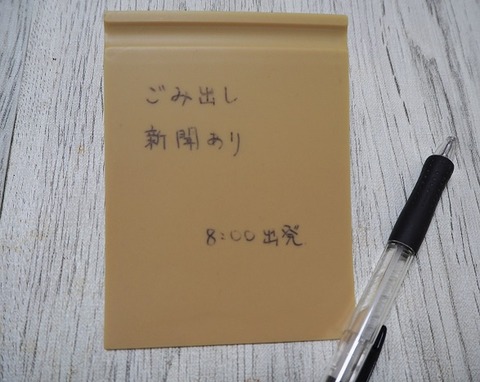 ごみ出し
新聞あり
8:00出発